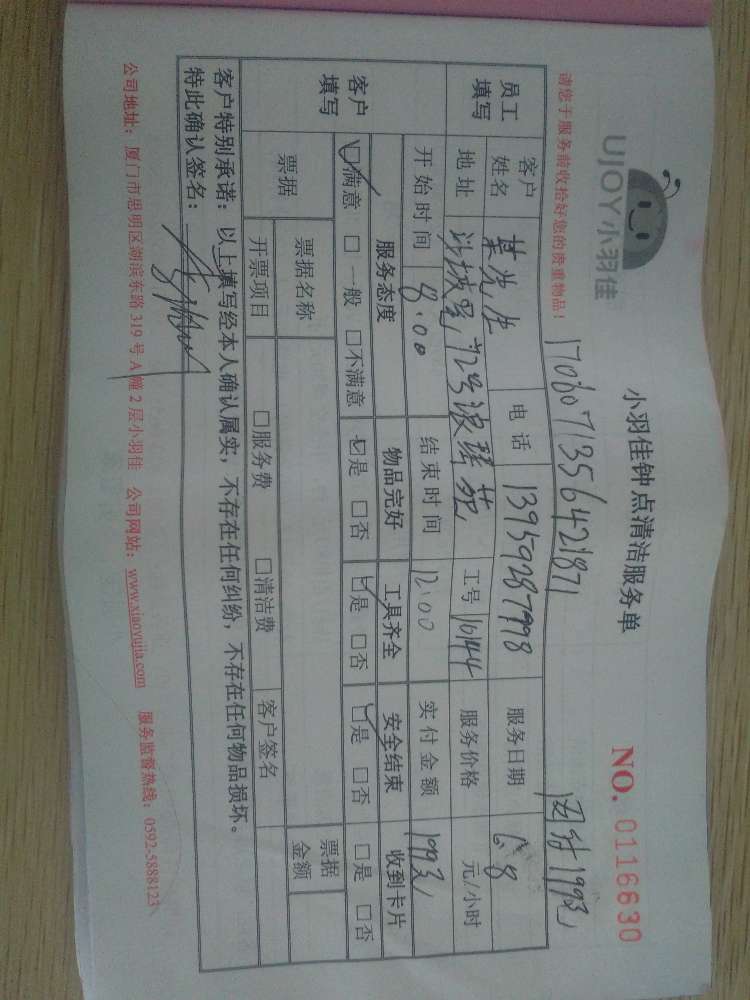 UJOY小羽佳
小羽佳钟点清洁服务单
NO. 0116630
请您于服务前收拾好您的贵重物品！
1706071356421871
199元
员工填写
客户姓名 某先生 电话 13959287998 服务日期 6.8
地址 工号 10144 服务价格 元/小时
开始时间 8:00 结束时间 12:00 实付金额 199元
客户填写
服务态度 物品完好 工具齐全 安全结束 收到卡片
☑满意 □一般 □不满意 ☑是 □否 ☑是 □否 ☑是 □否 □是 □否
票据 票据名称 票据金额
开票项目 □服务费 □清洁费 客户签名
客户特别承诺：以上填写经本人确认属实，不存在任何纠纷，不存在任何物品损坏。
特此确认签名：
公司地址：厦门市思明区湖滨东路319号A幢2层小羽佳 公司网站：www.xiaoyujia.com 服务监督热线：0592-5888123